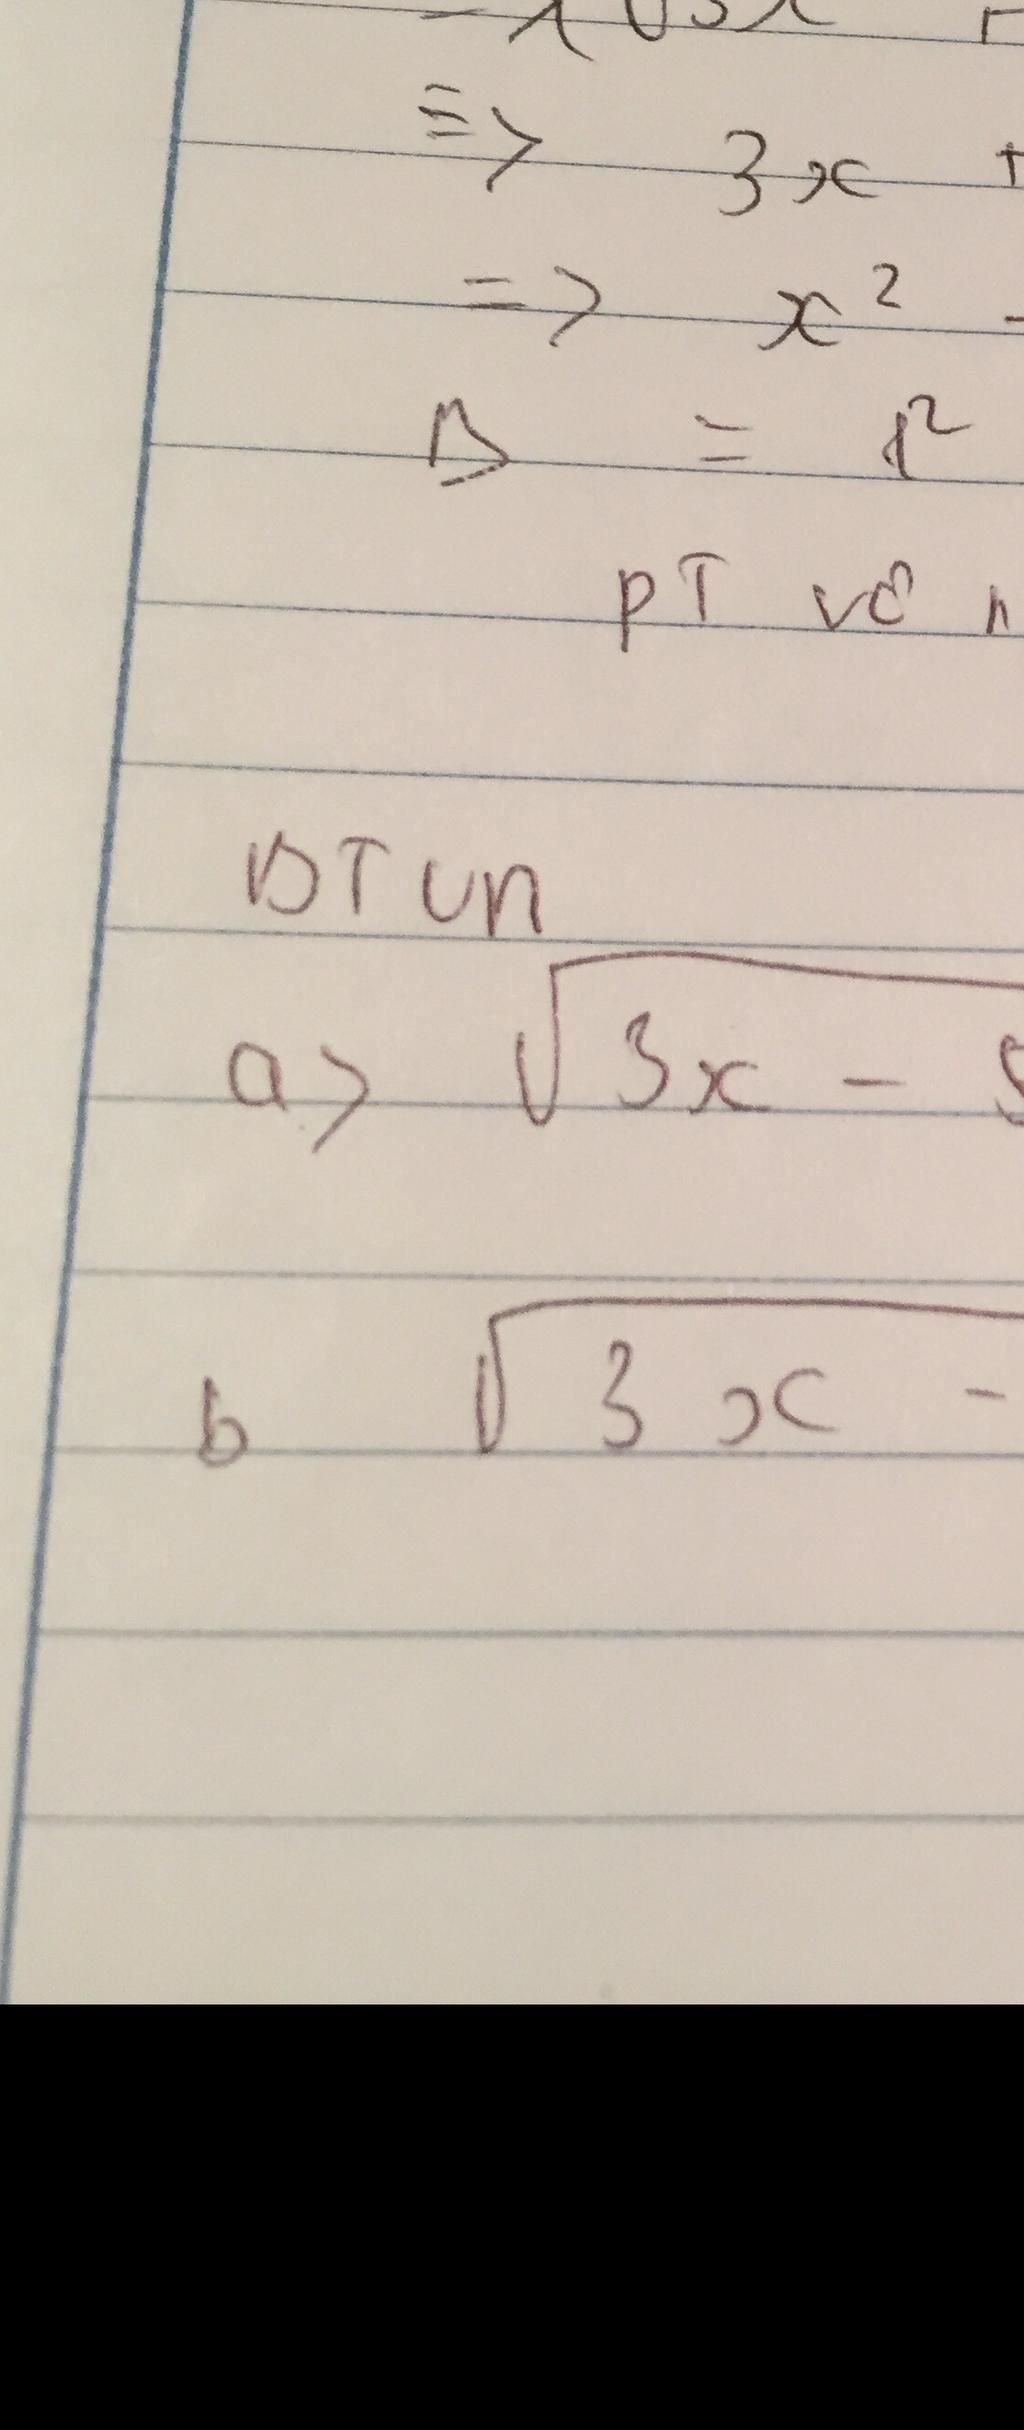 => 3x +
=> x² -
Δ = 1²
PT vô n
BTVN
a> √3x - 5
b √3x -